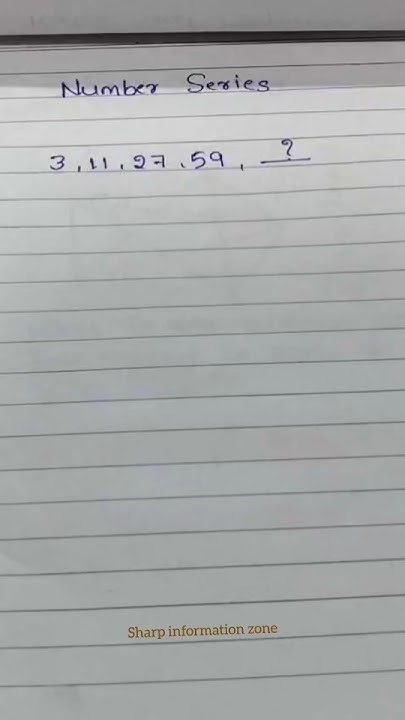 Number Series
3, 11, 27, 59, ?
Sharp information zone